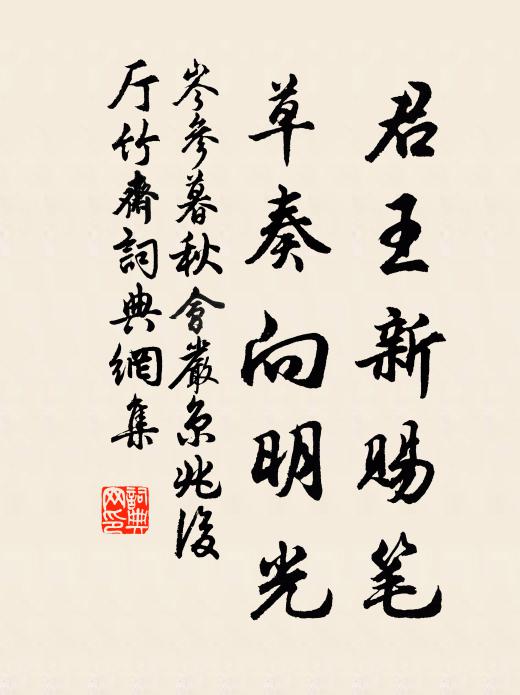 君王新赐笔
草奏向明光
岑参暮秋會嚴京兆後
厅竹齋詞典網集
詞典网印